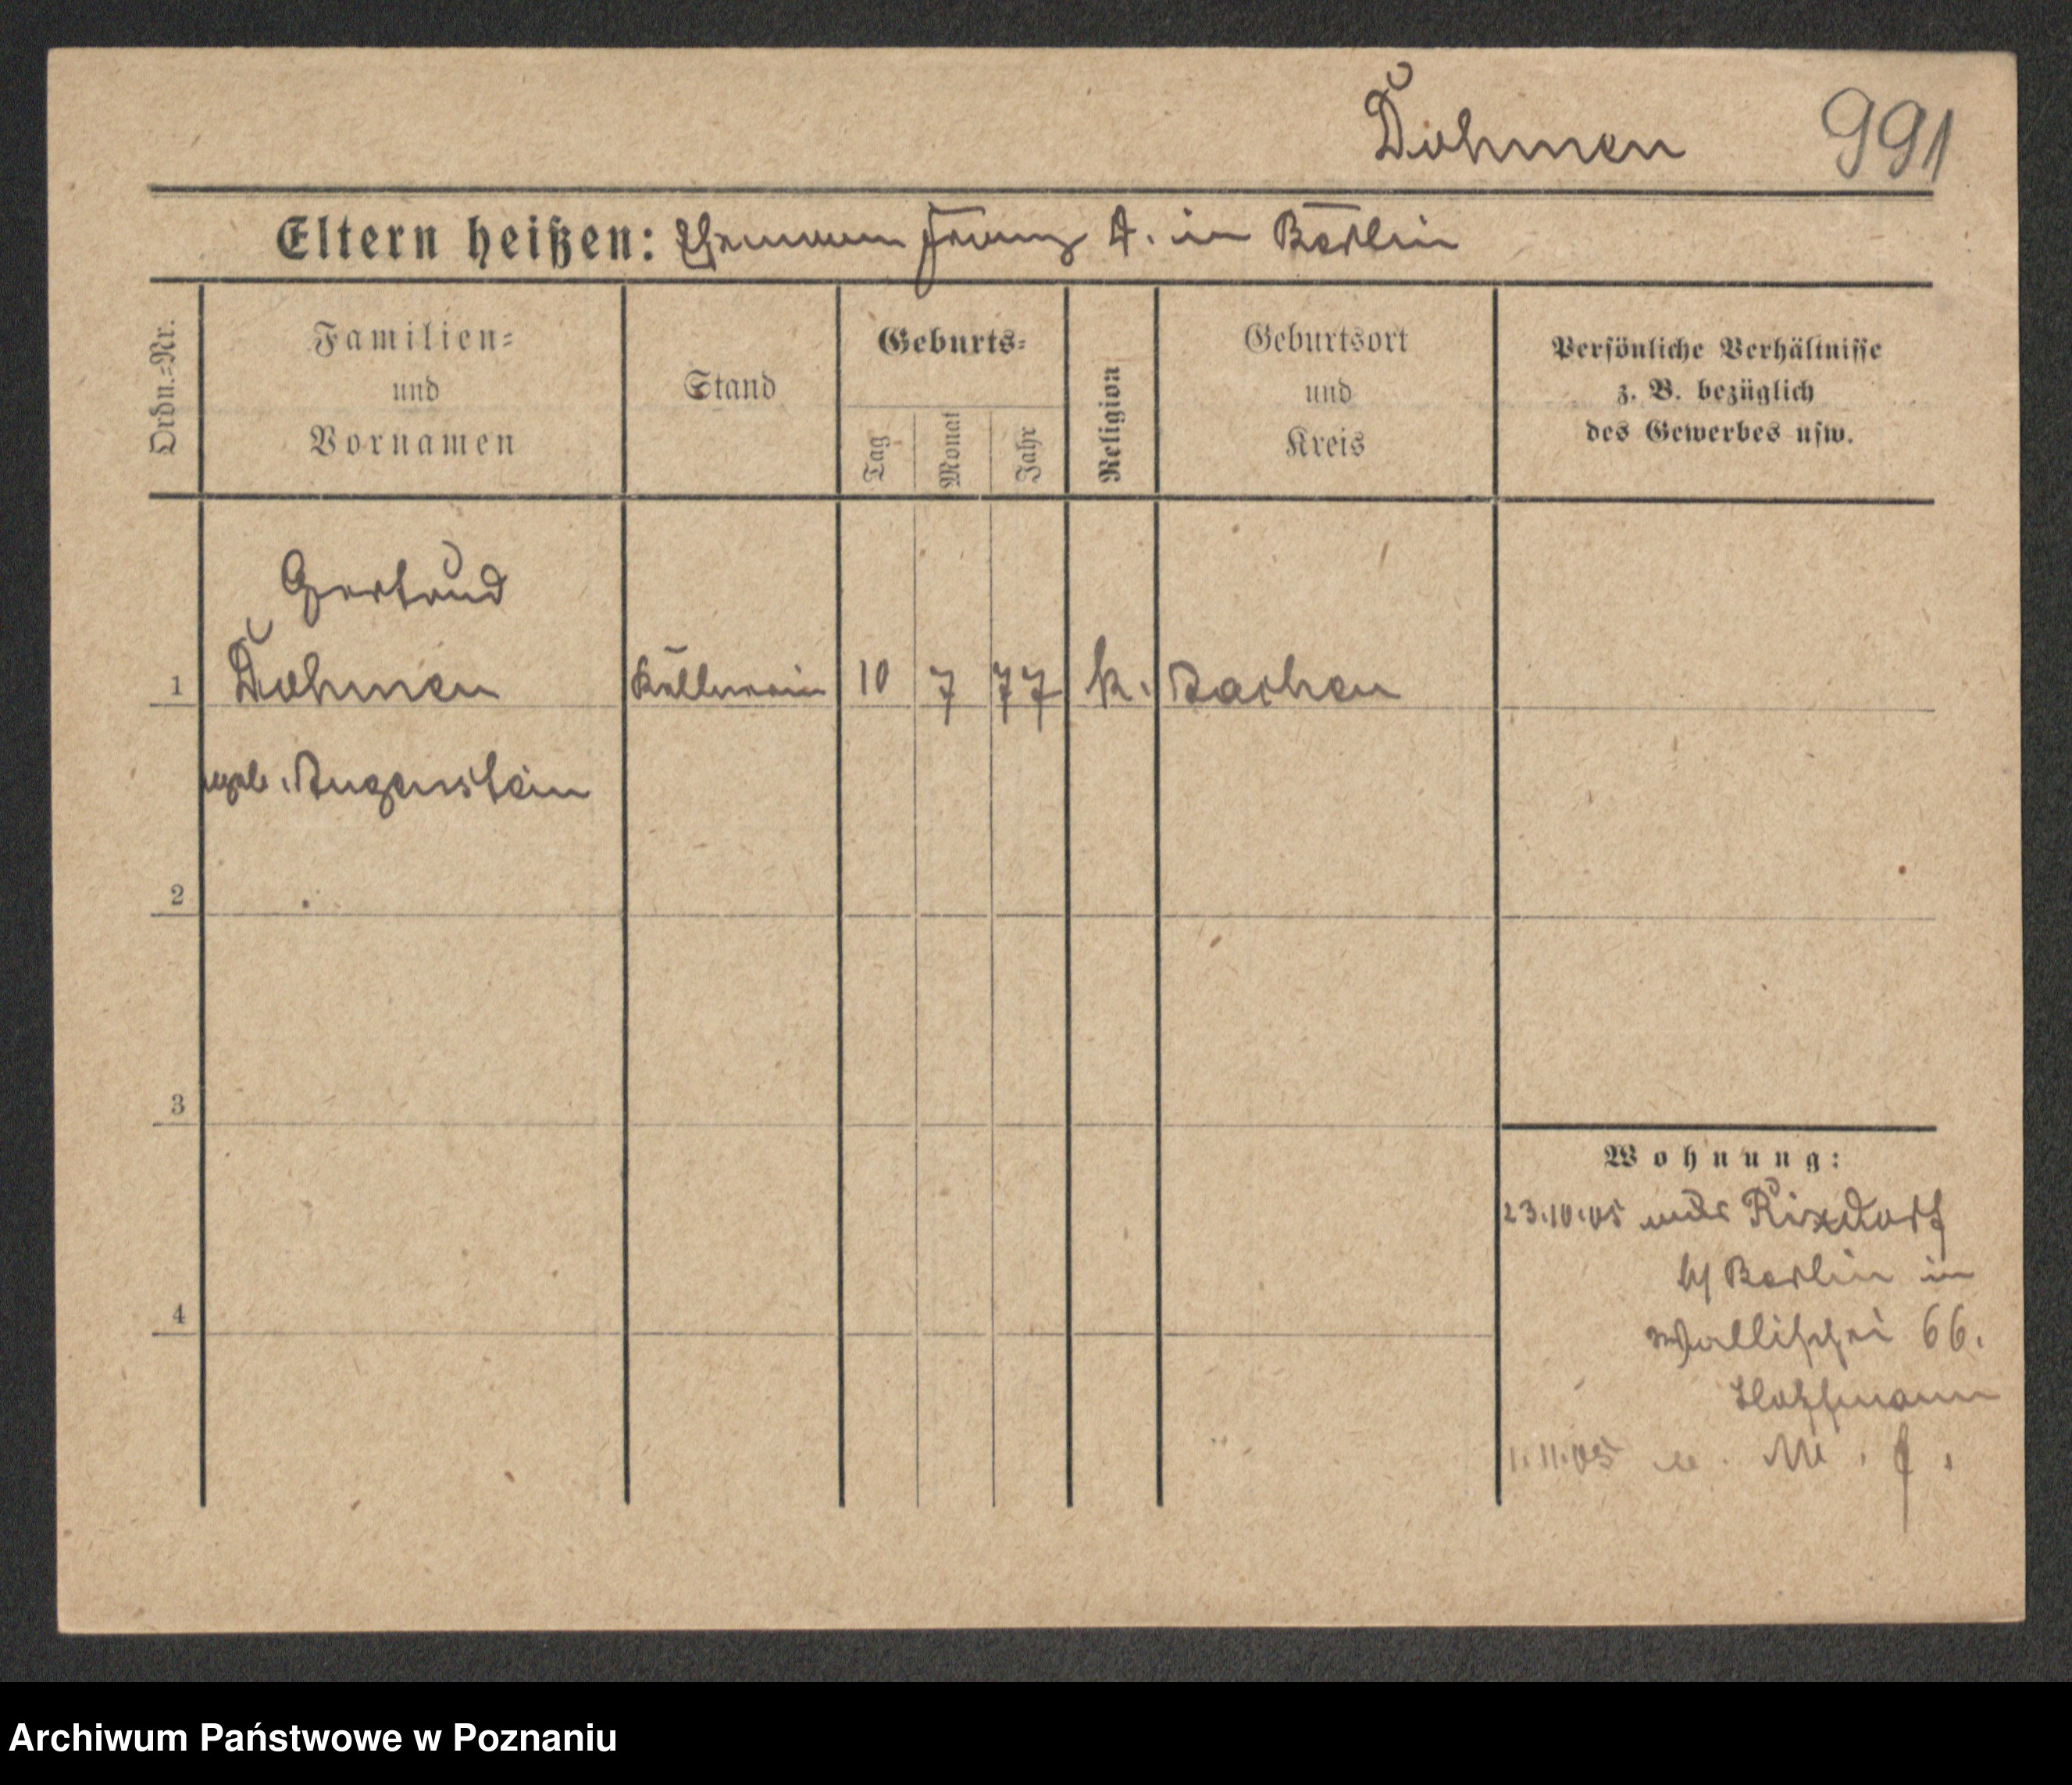 Dohmen 991
Eltern heißen: Ehemann Franz A. in Berlin
Ordn.=Nr.
Familien=
und
Vornamen
Stand
Geburts=
Tag
Monat
Jahr
Religion
Geburtsort
und
Kreis
Persönliche Verhältnisse
z. B. bezüglich
des Gewerbes usw.
Gertrud
1 Dohmen Kellnerin 10 7 77 k. Aachen
geb. Augenstein
2
3
4
Wohnung:
23.10.05 aus Rixdorf
b/ Berlin in
Wallischei 66.
Hoffmann
1.11.05
Archiwum Państwowe w Poznaniu